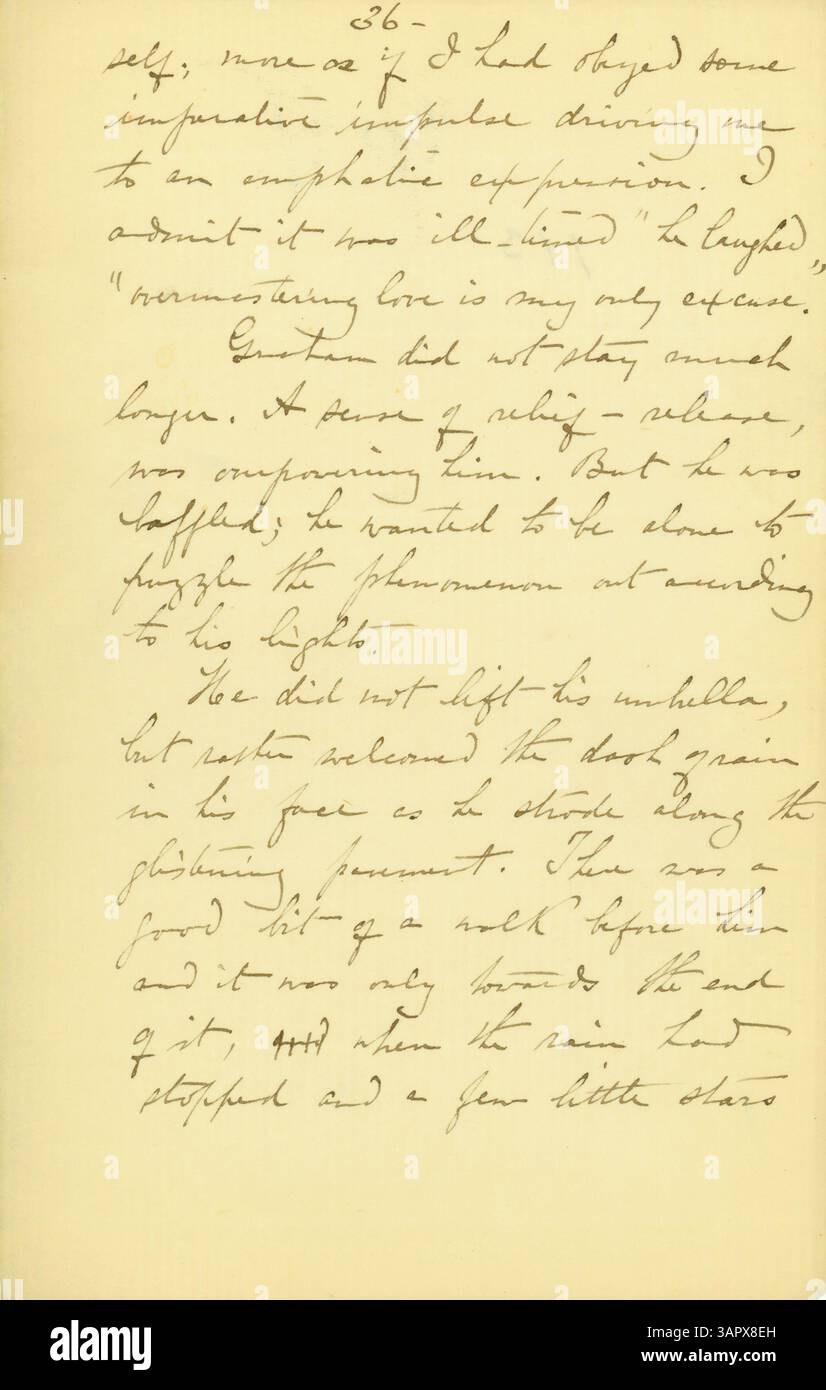 36-
self; more as if I had obeyed some
imperative impulse driving me
to an emphatic expression. I
admit it was ill-timed" he laughed,
"overmastering love is my only excuse."
Graham did not stay much
longer. A sense of relief - release,
was overpowering him. But he was
baffled; he wanted to be alone to
puzzle the phenomenon out according
to his lights.
He did not lift his umbrella,
but rather welcomed the dash of rain
in his face as he strode along the
glistening pavement. There was a
good bit of a walk before him
and it was only towards the end
of it, when the rain had
stopped and a few little stars
alamy
Image ID: 3APX8EH
www.alamy.com